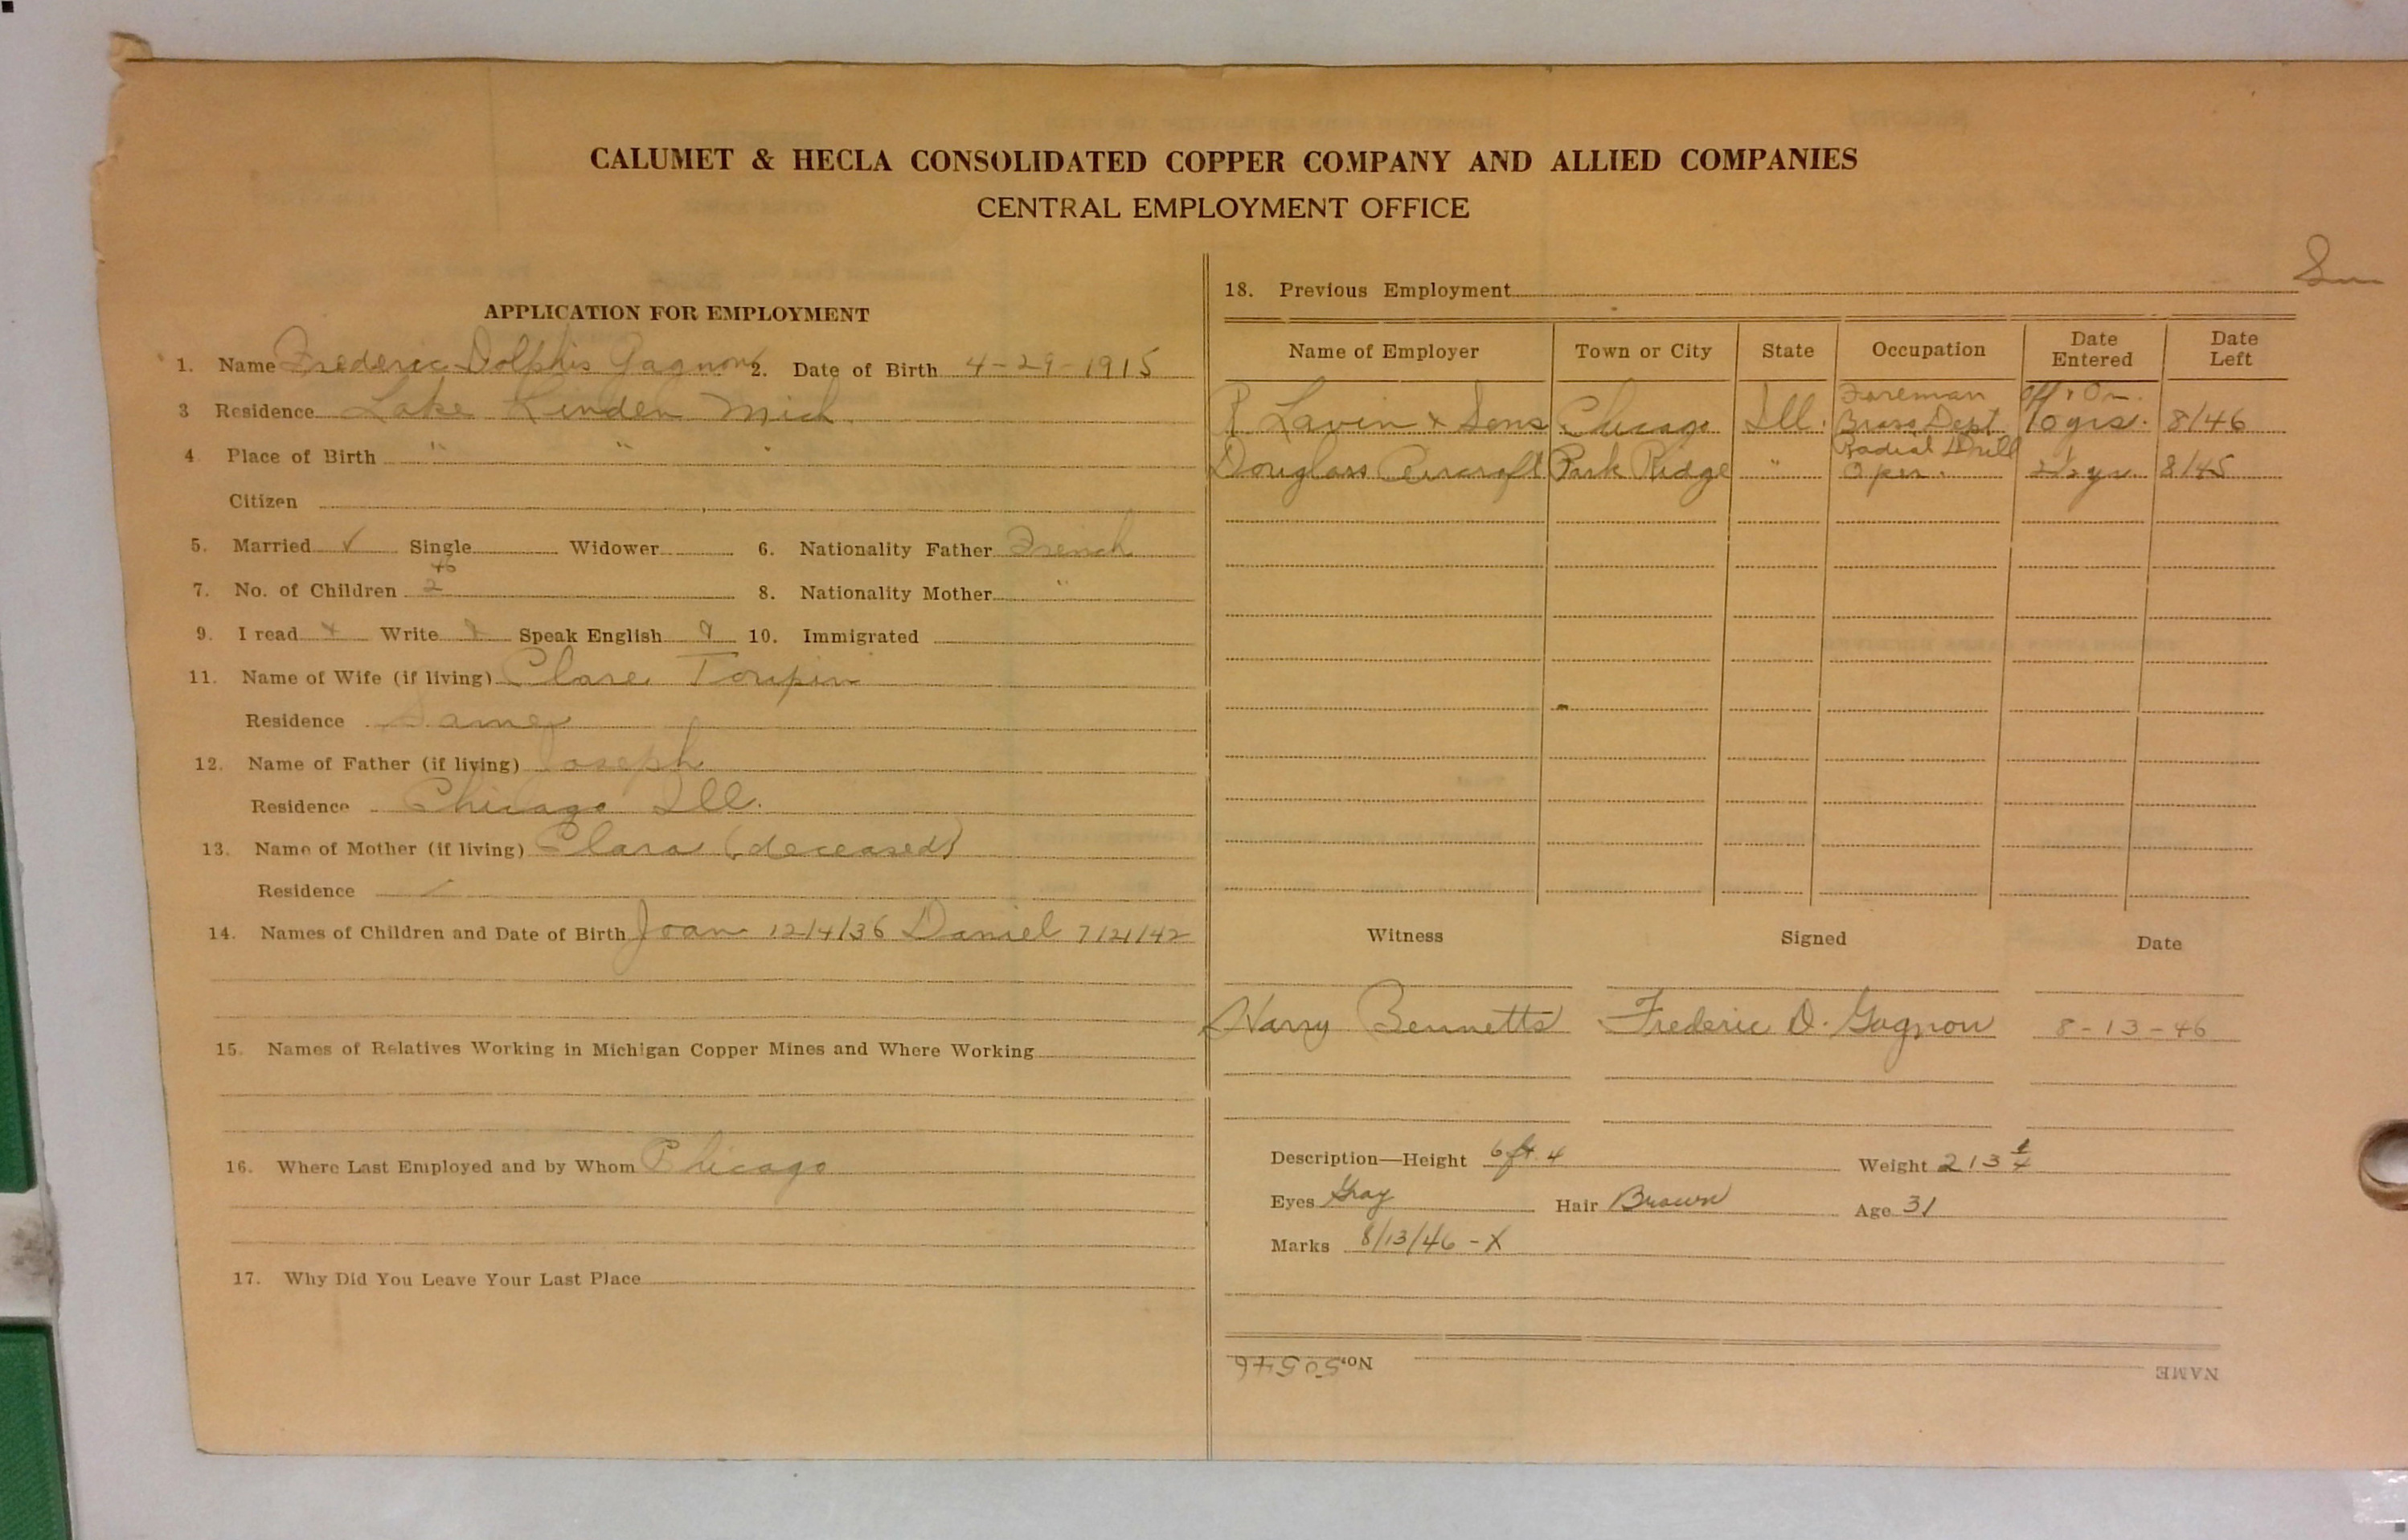 CALUMET & HECLA CONSOLIDATED COPPER COMPANY AND ALLIED COMPANIES
CENTRAL EMPLOYMENT OFFICE
APPLICATION FOR EMPLOYMENT
1. Name Frederic Dolphis Gagnon 2. Date of Birth 4-29-1915
3 Residence Lake Linden Mich
4. Place of Birth " "
Citizen
5. Married ✓ Single Widower 6. Nationality Father French
46
7. No. of Children 2 8. Nationality Mother "
9. I read Write Speak English 10. Immigrated
11. Name of Wife (if living) Clare Toupin
Residence Same
12. Name of Father (if living) Joseph
Residence Chicago Ill.
13. Name of Mother (if living) Clara (deceased)
Residence
14. Names of Children and Date of Birth Joan 12/4/36 Daniel 7/21/42
15. Names of Relatives Working in Michigan Copper Mines and Where Working
16. Where Last Employed and by Whom Chicago
17. Why Did You Leave Your Last Place
18. Previous Employment
Name of Employer Town or City State Occupation Date Entered Date Left
R Lavin & Sons Chicago Ill. Foreman Brass Dept Off & On. 10 yrs. 8/46
Douglass Aircraft Park Ridge " Radial Drill Oper. 2 1/2 yr. 8/45
Witness Signed Date
Harry Bennetts Frederic D. Gagnon 8-13-46
Description—Height 6 ft 4 Weight 213 1/4
Eyes Gray Hair Brown Age 31
Marks 8/13/46 - X
NAME No. 50546